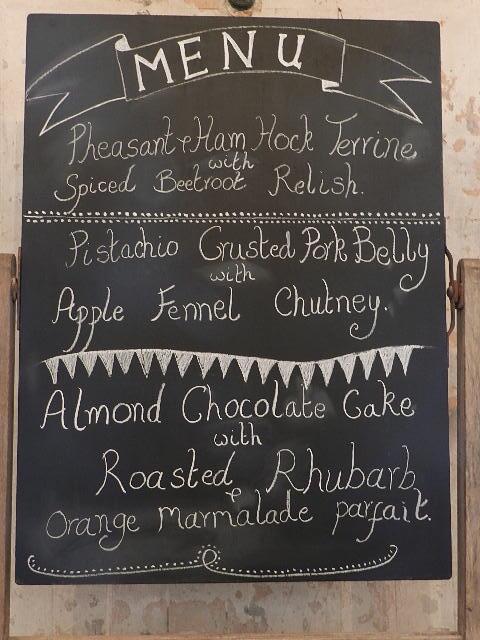 MENU
Pheasant & Ham Hock Terrine
with
Spiced Beetroot Relish.
Pistachio Crusted Pork Belly
with
Apple Fennel Chutney.
Almond Chocolate Cake
with
Roasted Rhubarb
&
Orange Marmalade parfait.